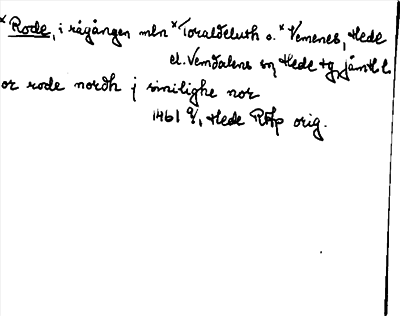 × Rode, i rågången mln ×Toraldeluth o. ×Vemenes, Hede
el. Vemdalens sn, Hede tg, Jämtl l.
or rode nordh j smilighe nor
1461 9/1 Hede RAp orig.